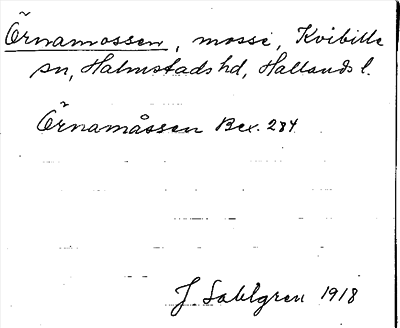 Örnamossen, mosse, Kvibille
sn, Halmstads hd, Hallands l.
Örnamåssen Bex. 284
J. Sahlgren 1918